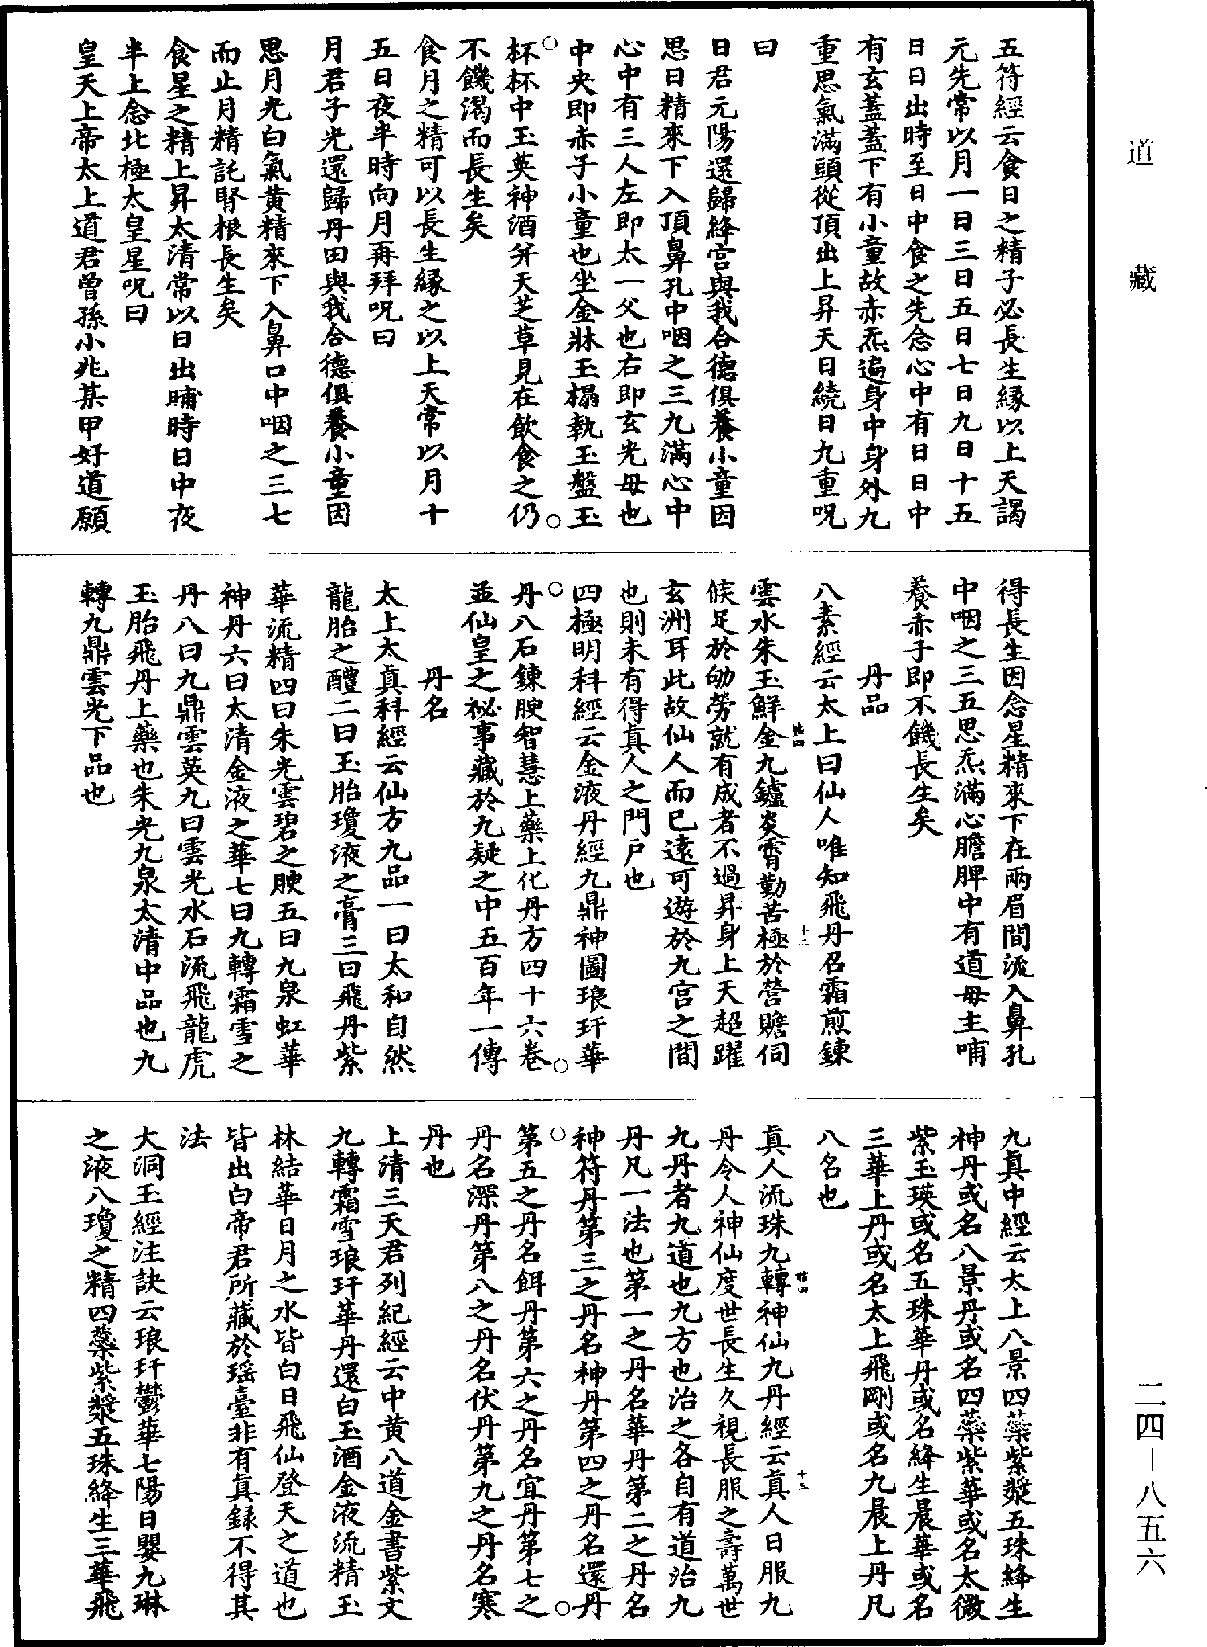 五符經云食日之精子必長生緣以上天謁
元先常以月一日三日五日七日九日十五
日日出時至日中食之先念心中有日日中
有玄蓋蓋下有小童故赤炁遶身中身外九
重思氣滿頭從頂出上昇天日繞日九重呪
曰
日君元陽還歸絳宮與我合德俱養小童因
思日精來下入頂鼻孔中咽之三九滿心中
心中有三人左即太一父也右即玄光母也
中央即赤子小童也坐金牀玉榻執玉盤玉
杯杯中玉英神酒并天芝草見在飲食之仍
不饑渴而長生矣
食月之精可以長生緣之以上天常以月十
五日夜半時向月再拜呪曰
月君子光還歸丹田與我合德俱養小童因
思月光白氣黄精來下入鼻口中咽之三七
而止月精託腎根長生矣
食星之精上昇太清常以日出晡時日中夜
半上念北極太皇星呪曰
皇天上帝太上道君曾孫小兆某甲好道願
得長生因念星精來下在兩眉間流入鼻孔
中咽之三五思炁滿心膽脾中有道母主哺
養赤子即不饑長生矣
丹品
八素經云太上曰仙人唯知飛丹召霜煎鍊
雲水朱玉鮮金九鑪炎霄勤苦極於營贍伺
候足於劬勞就有成者不過昇身上天超躍
玄洲耳此故仙人而已遠可遊於九宮之間
也則未有得真人之門戶也
四極明科經云金液丹經九鼎神圖琅玕華
丹八石鍊腴智慧上藥上化丹方四十六卷
並仙皇之祕事藏於九疑之中五百年一傳
丹名
太上太真科經云仙方九品一曰太和自然
龍胎之醴二曰玉胎瓊液之膏三曰飛丹紫
華流精四曰朱光雲碧之腴五曰九泉虹華
神丹六曰太清金液之華七曰九轉霜雪之
丹八曰九鼎雲英九曰雲光水石流飛龍虎
玉胎飛丹上藥也朱光九泉太清中品也九
轉九鼎雲光下品也
九真中經云太上八景四蘂紫漿五珠絳生
神丹或名八景丹或名四蘂紫華或名太微
紫玉瑛或名五珠華丹或名絳生晨華或名
三華上丹或名太上飛剛或名九晨上丹凡
八名也
真人流珠九轉神仙九丹經云真人日服九
丹令人神仙度世長生久視長服之壽萬世
九丹者九道也九方也治之各自有道治九
丹凡一法也第一之丹名華丹第二之丹名
神符丹第三之丹名神丹第四之丹名還丹
第五之丹名餌丹第六之丹名宜丹第七之
丹名深丹第八之丹名伏丹第九之丹名寒
丹也
上清三天君列紀經云中黄八道金書紫文
九轉霜雪琅玕華丹還白玉酒金液流精玉
林結華日月之水皆白日飛仙登天之道也
皆出白帝君所藏於瑶臺非有真録不得其
法
大洞玉經注訣云琅玕鬱華七陽日嬰九琳
之液八瓊之精四蘂紫漿五珠絳生三華飛
道藏
二四—八五六